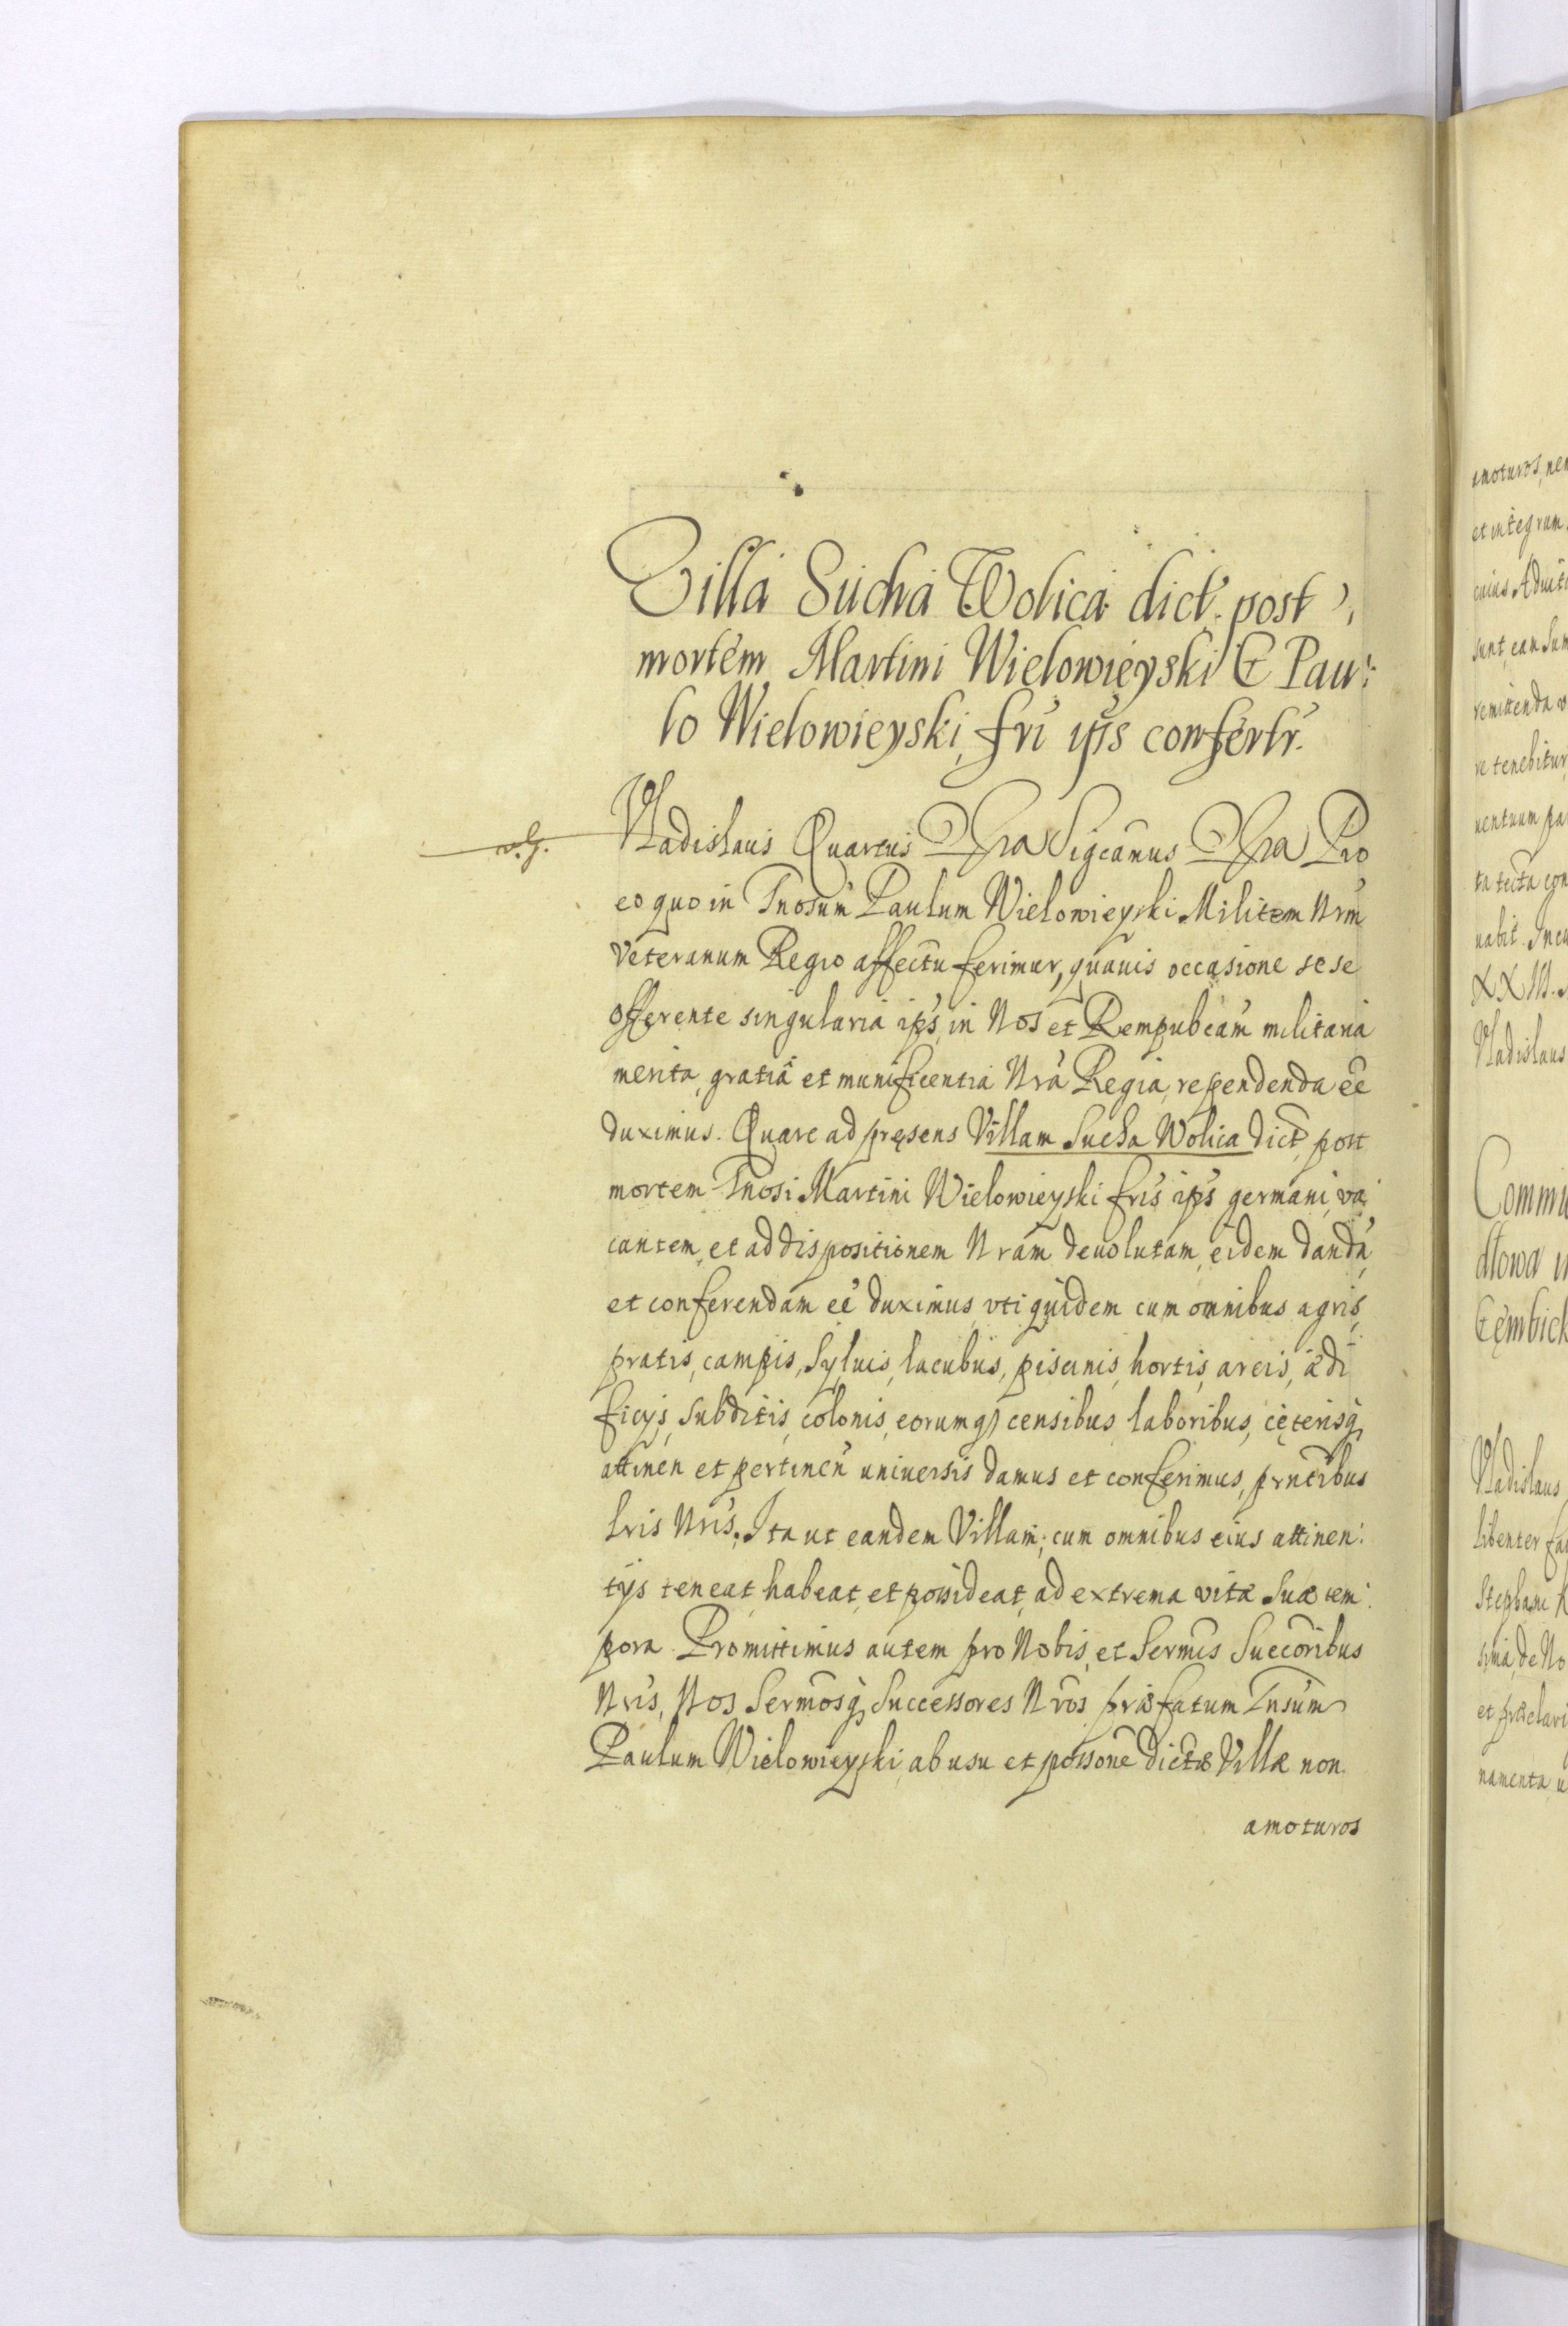 Villa Sucha Wolica dict. post
mortem Martini Wielowieyski G Pau:
lo Wielowieyski, fri ips confertr.
Vladislaus Quartus Sigcanus Pro
eo quo in Gnosum Paulum Wielowieyski Militem Nrm
veteranum Regio affectu ferimur, quauis occasione sese
offerente singularia ips, in Nos et Rempubcam militaria
merita, gratia et munificentia Nra Regia, rependenda eē
duximus. Quare ad pręsens Villam Sucha Wolica dict, post
mortem Gnosi Martini Wielowieyski fris ips germani, va
cantem, et ad dispositionem Nram deuolutam, eidem danda,
et conferendam eē duximus, vti quidem cum omnibus agris,
pratis, campis, Syluis, lacubus, piscinis, hortis, areis, ædi
ficys, subditis, colonis, eorumq; censibus laboribus, cęterisq,
attinen et pertinen uniuersis damus et conferimus, prntibus
lris Nris. Ita ut eandem Villam, cum omnibus eius attinen:
tys teneat, habeat, et possideat, ad extrema vitæ suæ tem:
pora. Promittimus autem pro Nobis, et Sermis Succoribus
Nris, Nos Sermosq, Successores Nros præfatum Gnsum
Paulum Wielowieyski, ab usu et possone dictæ Villæ non
amoturos
amoturos, nen
et integrum
cuius Aduit
sunt, eam sum
remittenda v
re tenebitur
uentuum pa
ta tecta con
nabit. Incu
XX M.
Vladislaus
Commu
dłowa
Gembick
Vladislaus
libenter fa
Stephani K
de No
et præclari
namenta u